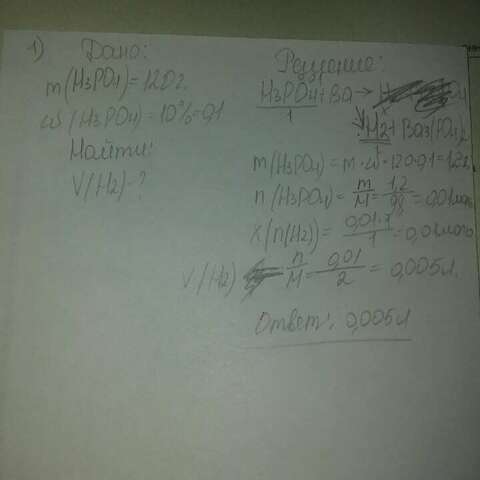 1) Дано:
m(H3PO4)=120г.
ω(H3PO4)=10%=0,1
Найти:
V(H2)-?
Решение:
H3PO4+Ba→
1
↓H2+Ba3(PO4)2
1
m(H3PO4)=m·ω=120·0,1=1,2г
n(H3PO4)=m/M=1,2/98=0,01моль
X(n(H2))=0,01·1/1=0,01моль
V(H2) n/M=0,01/2=0,005л.
Ответ: 0,005л